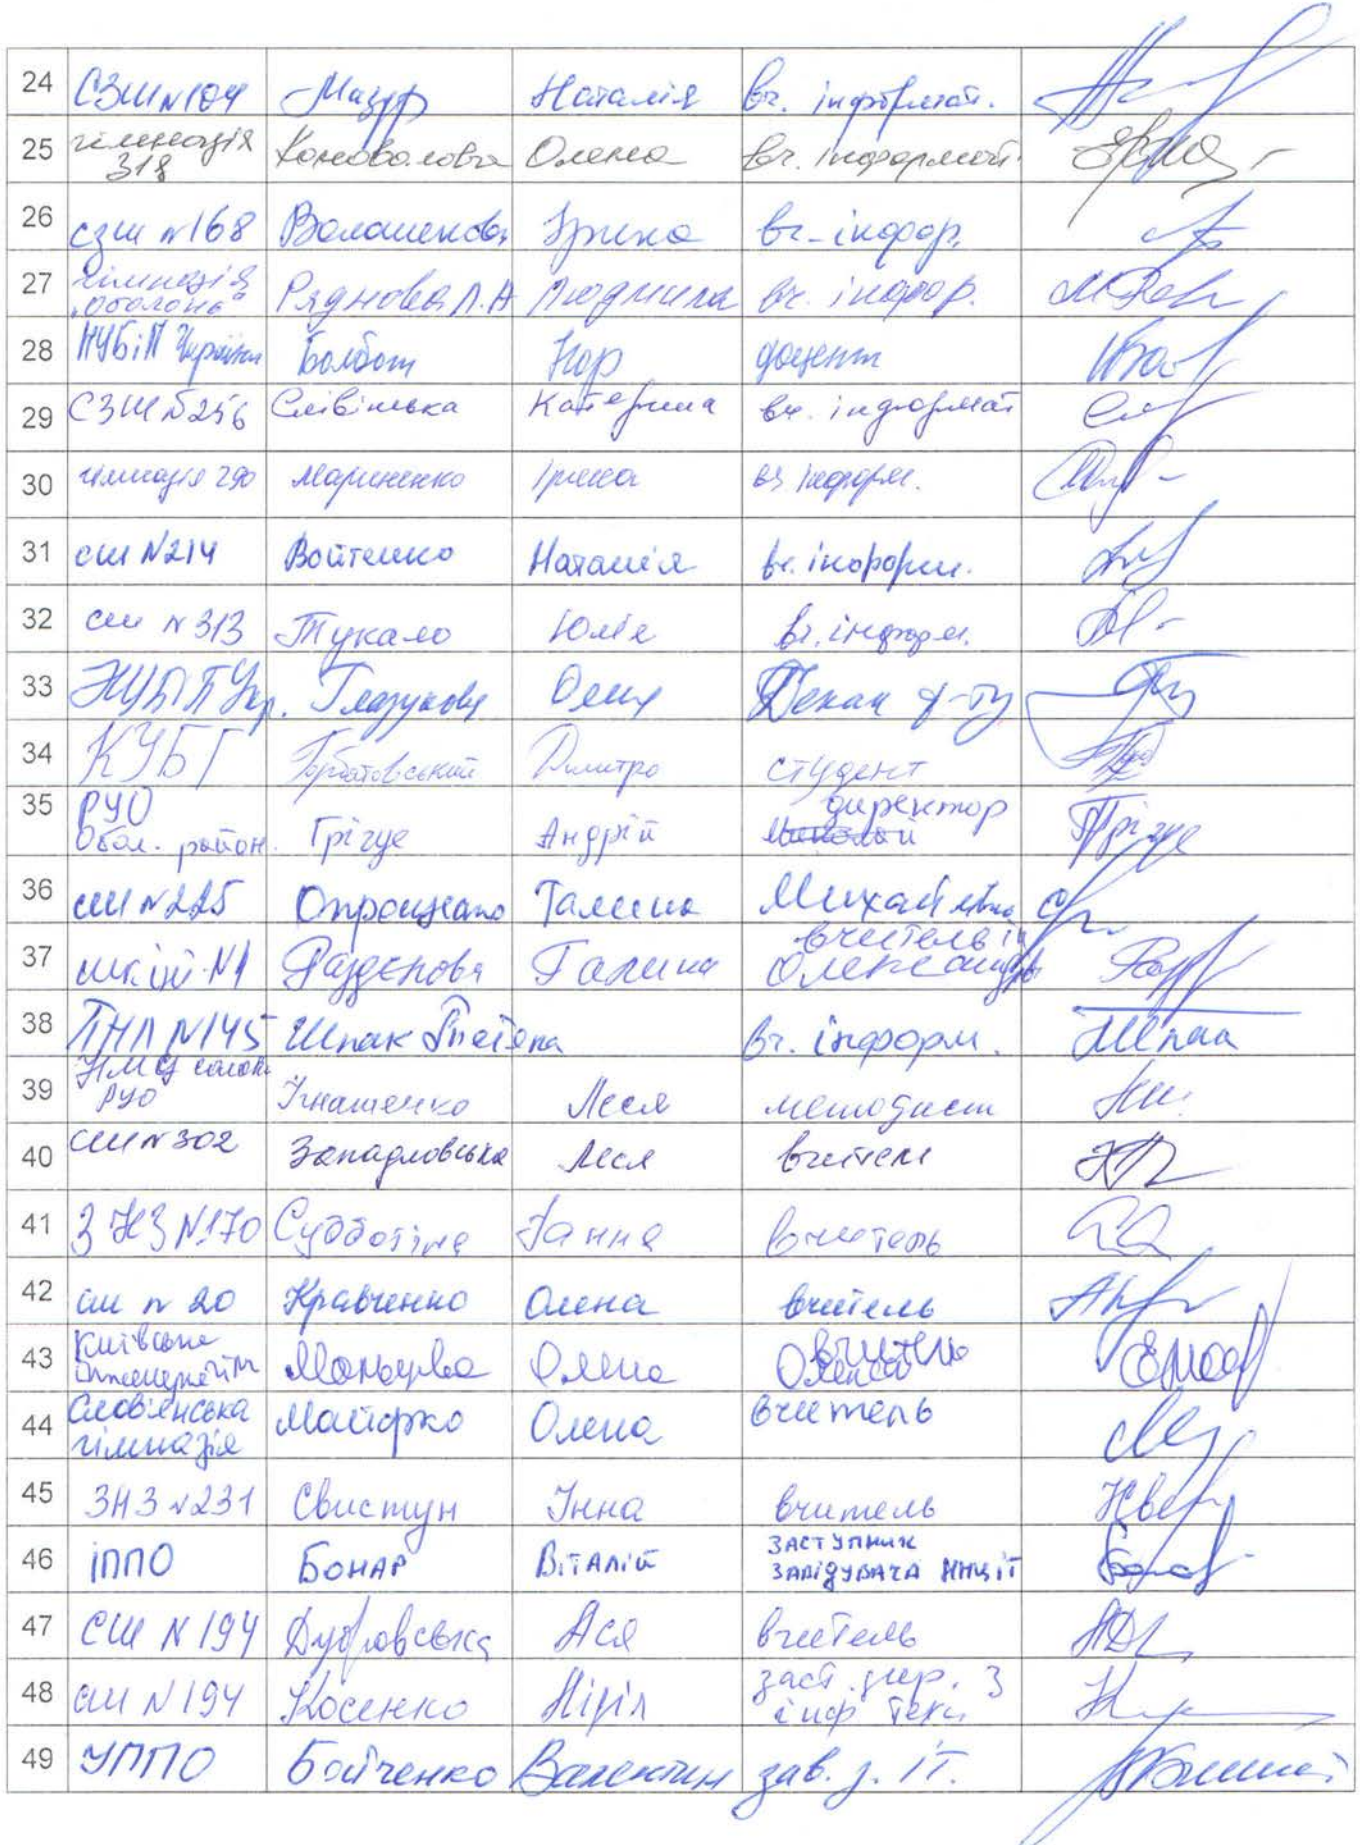 24 СЗШ №104 Мазур Наталія вч. інформат.
25 гімназія 318 Коновалова Олена вч. інформат.
26 сзш №168 Волошенова Ірина вч. інфор.
27 гімназія „Оболонь“ Ряднова Л.А Людмила вч. інфор.
28 НУБіП України Болбот Ігор доцент
29 СЗШ №256 Слівінська Катерина вч. інформат
30 гімназія 290 Мариненко Ірина вч інформ.
31 сш №214 Войтенко Наталія вч. інформ.
32 сш №313 Тукало Юлія вч. інформ.
33 НУБіП Укр. Глазунова Олена Декан ф-ту
34 КУБГ Горбатовський Дмитро студент
35 РУО Обол. район. Грігує Андрій директор
36 сш №225 Галина Михайлівна
37 №1 Разденова Галина вчитель
38 ПНЛ №145 Шпак Тетяна вч. інформ.
39 НМЦ РУО Ігнатенко Леся методист
40 сш №302 Западловська Леся вчитель
41 ЗНЗ №170 Субботіна Ганна вчитель
42 сш №20 Кравченко Олена вчитель
43 Київська Олена вчитель
44 Слов'янська гімназія Майорко Олена вчитель
45 ЗНЗ №231 Свистун Інна вчитель
46 ІППО Бонар Віталій заступник завідувача ННЦІТ
47 СШ №194 Дубровська Ася вчитель
48 сш №194 Косенко Ніріл заст. дир. з інф техн
49 УППО Бойченко Валентин зав. з. ІТ.